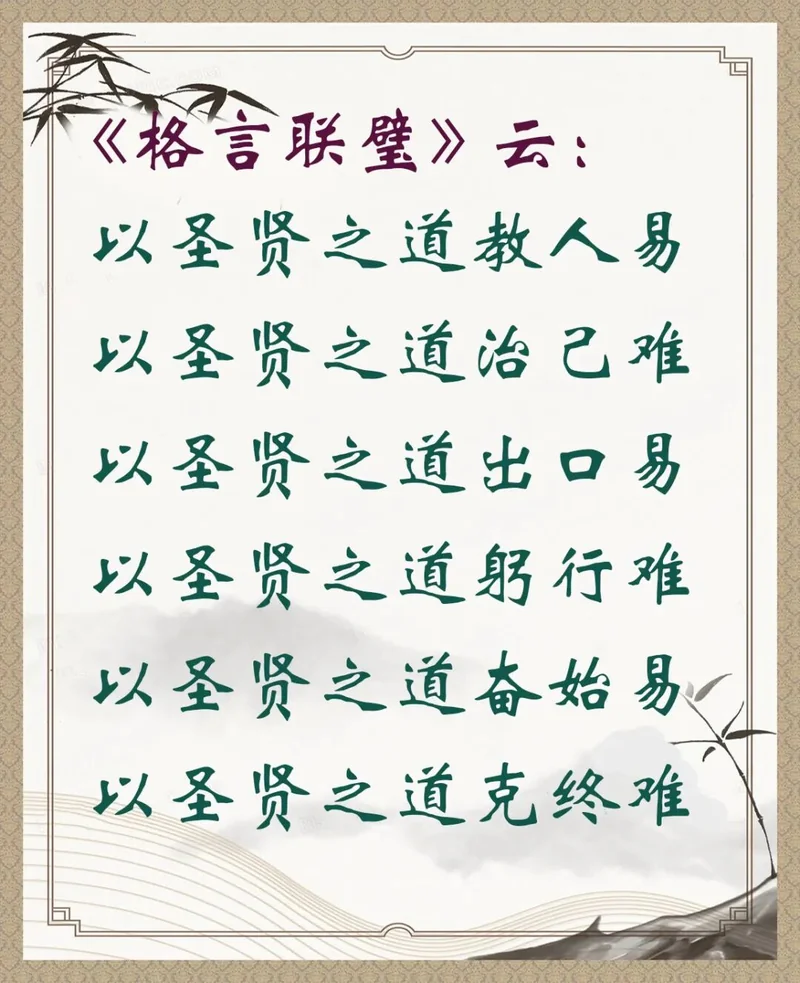 《格言联璧》云：
以圣贤之道教人易
以圣贤之道治己难
以圣贤之道出口易
以圣贤之道躬行难
以圣贤之道奋始易
以圣贤之道克终难